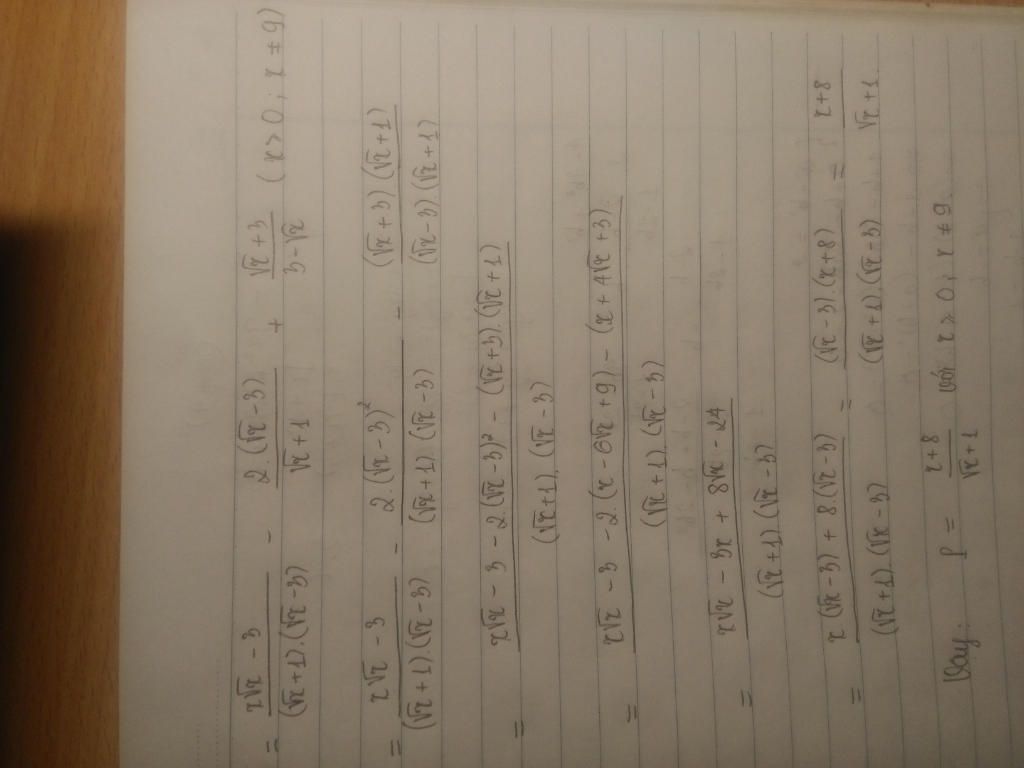 = (x√x - 3)/((√x+1).(√x-3)) - (2.(√x-3))/(√x+1) + (√x+3)/(3-√x) (x > 0 ; x ≠ 9)
= (x√x - 3)/((√x+1).(√x-3)) - (2.(√x-3)²)/((√x+1).(√x-3)) - ((√x+3).(√x+1))/((√x-3).(√x+1))
= (x√x - 3 - 2.(√x-3)² - (√x+3).(√x+1))/((√x+1).(√x-3))
= (x√x - 3 - 2.(x - 6√x + 9) - (x + 4√x + 3))/((√x+1).(√x-3))
= (x√x - 3x + 8√x - 24)/((√x+1).(√x-3))
= (x(√x-3) + 8.(√x-3))/((√x+1).(√x-3)) = ((√x-3).(x+8))/((√x+1).(√x-3)) = (x+8)/(√x+1)
Vậy: P = (x+8)/(√x+1) với x > 0 ; x ≠ 9